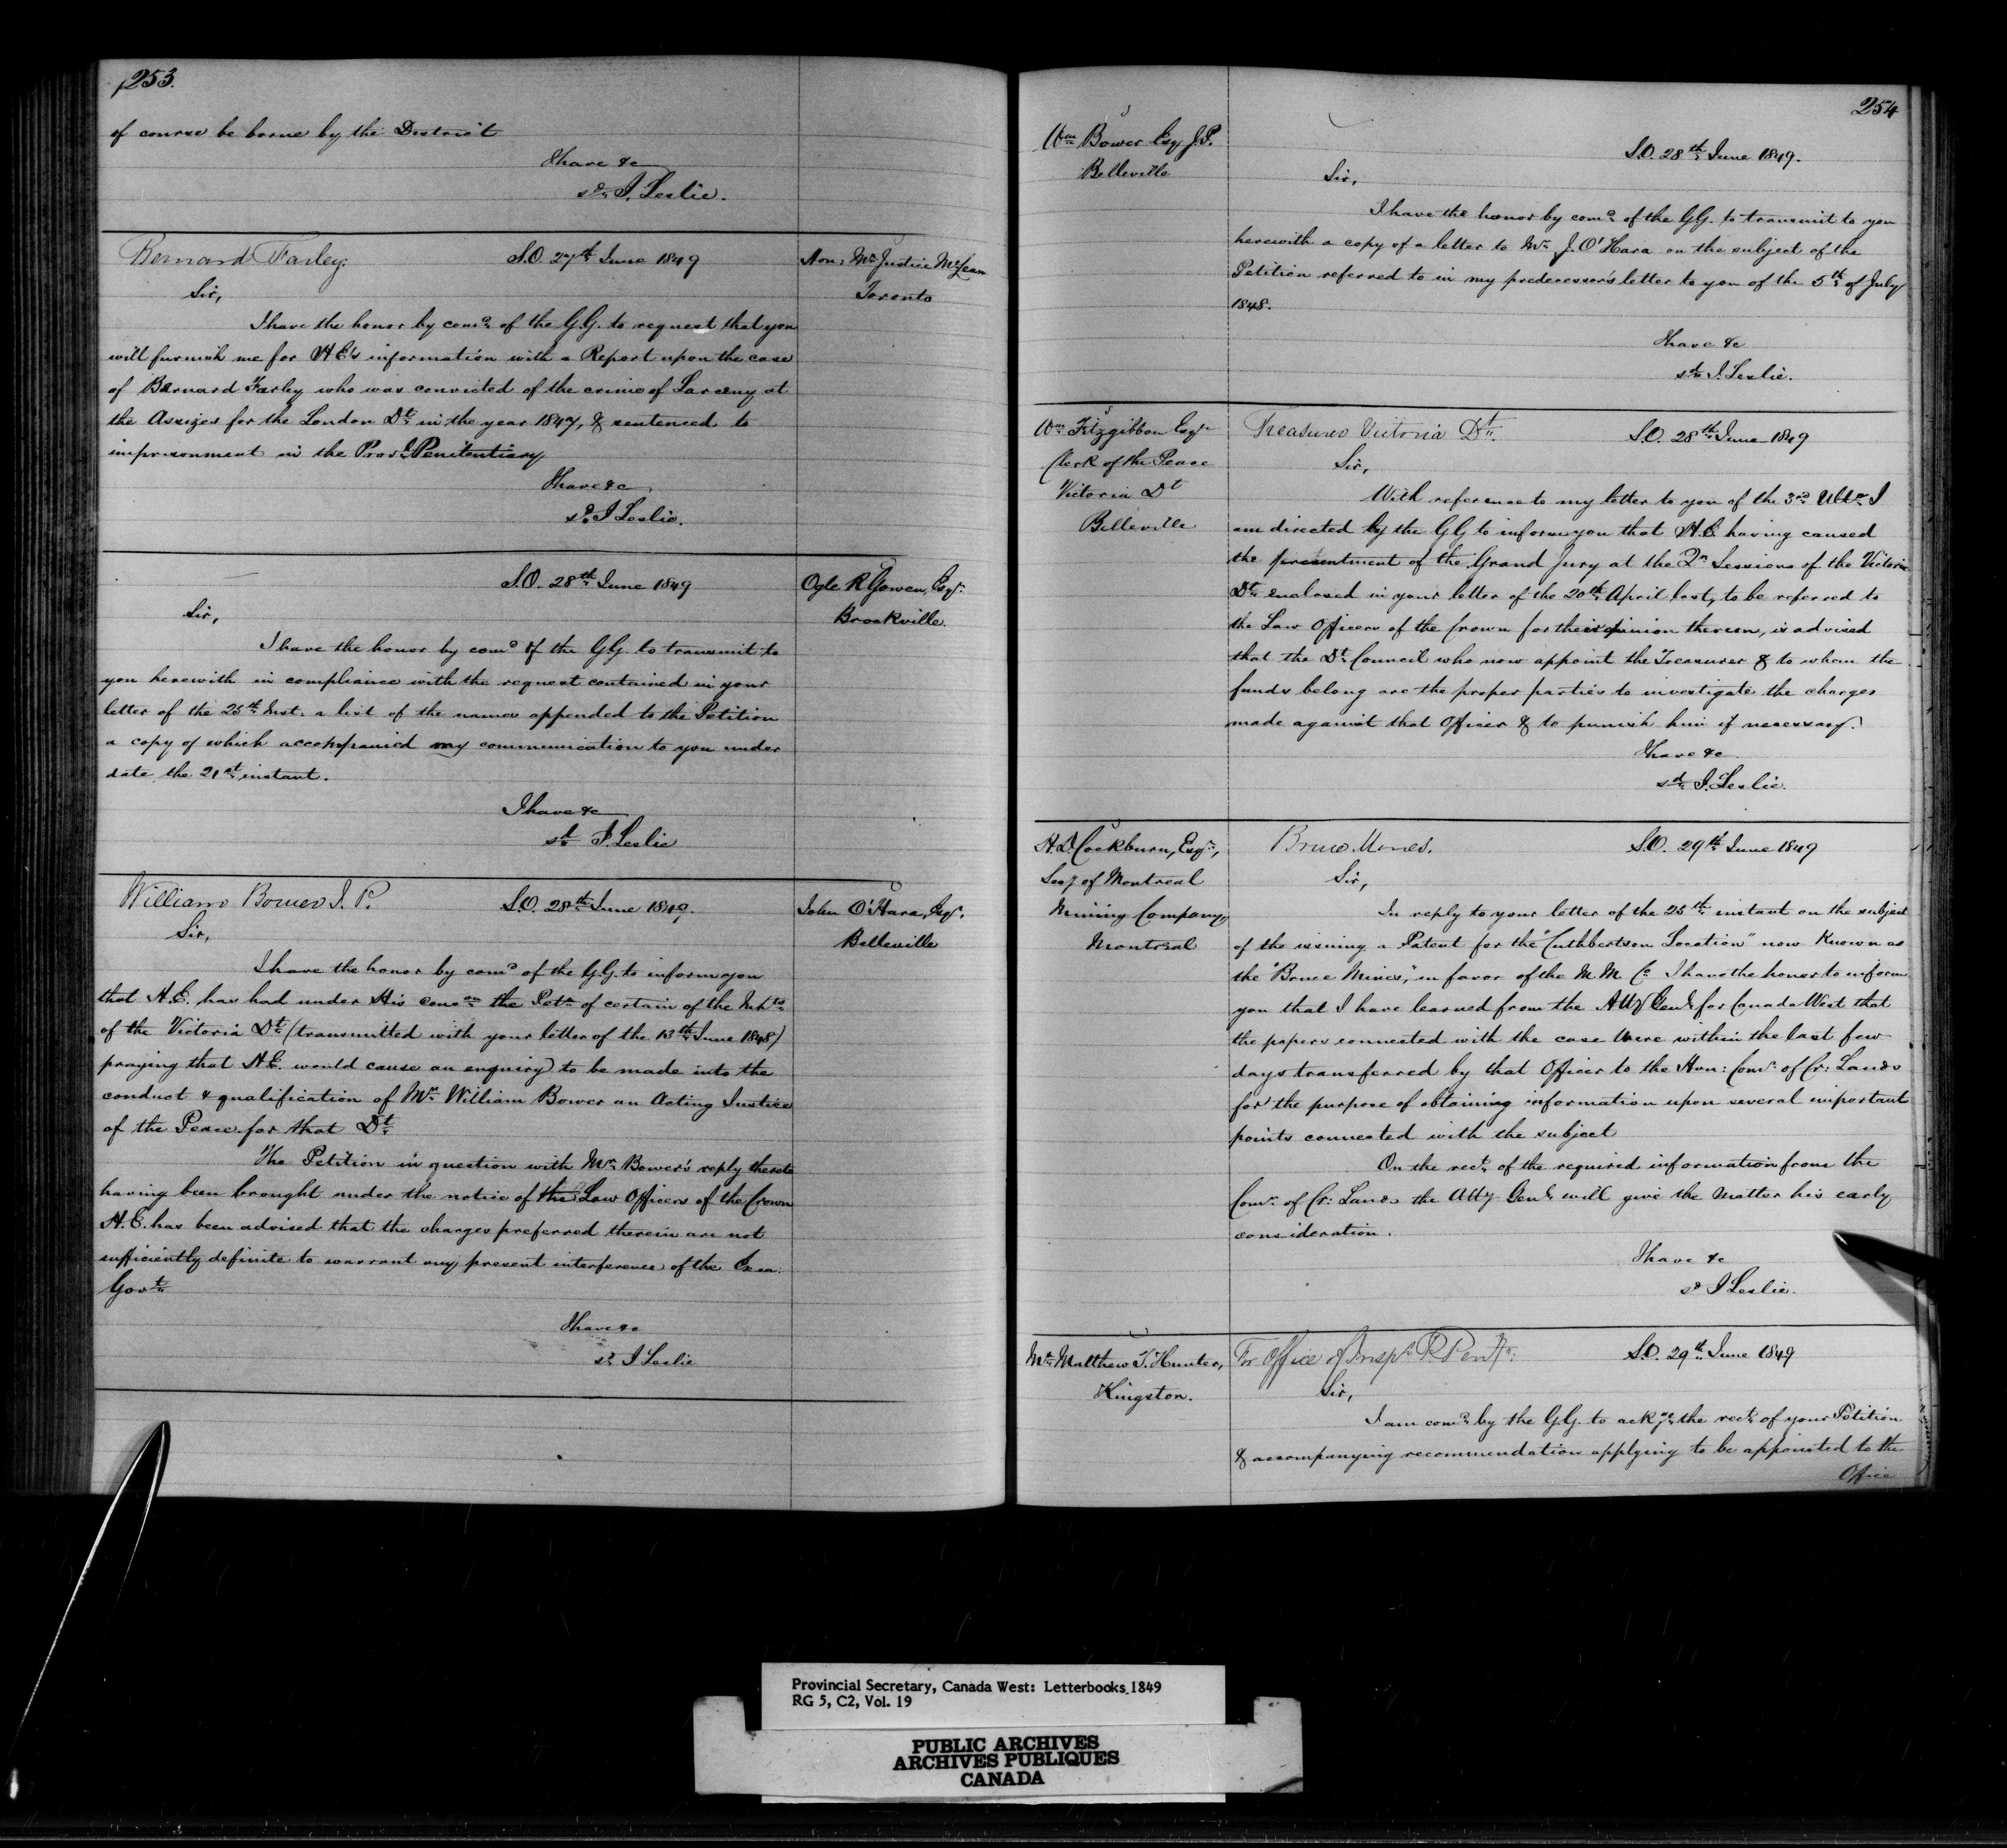 253.
of course be borne by the District
I have &c
sd. J. Leslie.
Bernard Farley.
S.O. 27th June 1849
Hon: Mr Justice McLean
Toronto
Sir,
I have the honor by comd. of the G.G. to request that you
will furnish me for H.E's information with a Report upon the case
of Bernard Farley who was convicted of the crime of Larceny at
the Assizes for the London Dt. in the year 1847, & sentenced to
imprisonment in the Provl. Penitentiary
I have &c
sd. J Leslie.
S.O. 28th June 1849
Ogle R Gowen, Esqr.
Brockville.
Sir,
I have the honor by comd of the G.G. to transmit to
you herewith in compliance with the request contained in your
letter of the 25th Inst. a list of the names appended to the Petition
a copy of which accompanied my communication to you under
date the 21st instant.
I have &c
sd J. Leslie
William Bower J. P.
S.O. 28th June 1849.
John O'Hara, Esqr.
Belleville
Sir,
I have the honor by comd of the G.G. to inform you
that H.E. has had under His conson the Petn of certain of the Inhts
of the Victoria Dt. (transmitted with your letter of the 13th June 1848)
praying that H.E. would cause an enquiry to be made into the
conduct & qualification of Mr. William Bower an Acting Justice
of the Peace for that Dt.
The Petition in question with Mr. Bower's reply thereto
having been brought under the notice of the Law Officers of the Crown
H.E. has been advised that the charges preferred therein are not
sufficiently definite to warrant any present interference of the Exec.
Govt.
I have &c
sd. J Leslie
254
Wm Bower Esq J.P.
Belleville
S.O. 28th June 1849.
Sir,
I have the honor by comd. of the G.G. to transmit to you
herewith a copy of a letter to Mr. J. O'Hara on the subject of the
Petition referred to in my predecessor's letter to you of the 5th of July
1848.
I have &c
sd. J. Leslie.
Wm Fitzgibbon Esqr
Clerk of the Peace
Victoria Dt
Belleville
Treasurer Victoria Dt.
S.O. 28th June 1849
Sir,
With reference to my letter to you of the 3rd Ulto. I
am directed by the G.G. to inform you that H.E. having caused
the presentment of the Grand Jury at the 2n Sessions of the Victoria
Dt. enclosed in your letter of the 20th April last, to be referred to
the Law Officers of the Crown for their opinion thereon, is advised
that the Dt. Council who now appoint the Treasurer & to whom the
funds belong are the proper parties to investigate the charges
made against that Officer & to punish him if necessary.
I have &c
sd J. Leslie.
H.D. Cockburn, Esqr.,
Secy of Montreal
Mining Company,
Montreal
Bruce Mines.
S.O. 29th June 1849
Sir,
In reply to your letter of the 25th instant on the subject
of the issuing a Patent for the "Cuthbertson Location" now Known as
the "Bruce Mines," in favor of the M. M. Co I have the honor to inform
you that I have learned from the Atty Genl. for Canada West that
the papers connected with the case were within the last few
days transferred by that Officer to the Hon: Comr. of Cr: Lands
for the purpose of obtaining information upon several important
points connected with the subject
On the rect. of the required information from the
Comr. of Cr: Lands the Atty Genl. will give the Matter his early
consideration.
I have &c
sd J Leslie.
Mr. Matthew T. Hunter,
Kingston.
For Office of Inspr. P. Peny.
S.O. 29th June 1849
Sir,
I am comd. by the G.G. to ackge. the rect. of your Petition
& accompanying recommendation applying to be appointed to the
Office
Provincial Secretary, Canada West: Letterbooks 1849
RG 5, C2, Vol. 19
PUBLIC ARCHIVES
ARCHIVES PUBLIQUES
CANADA